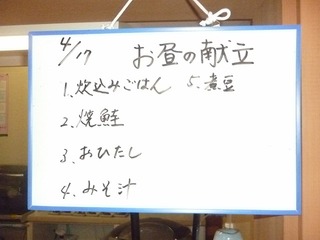 4/17 お昼の献立
1. 炊込みごはん 5. 煮豆
2. 焼鮭
3. おひたし
4. みそ汁